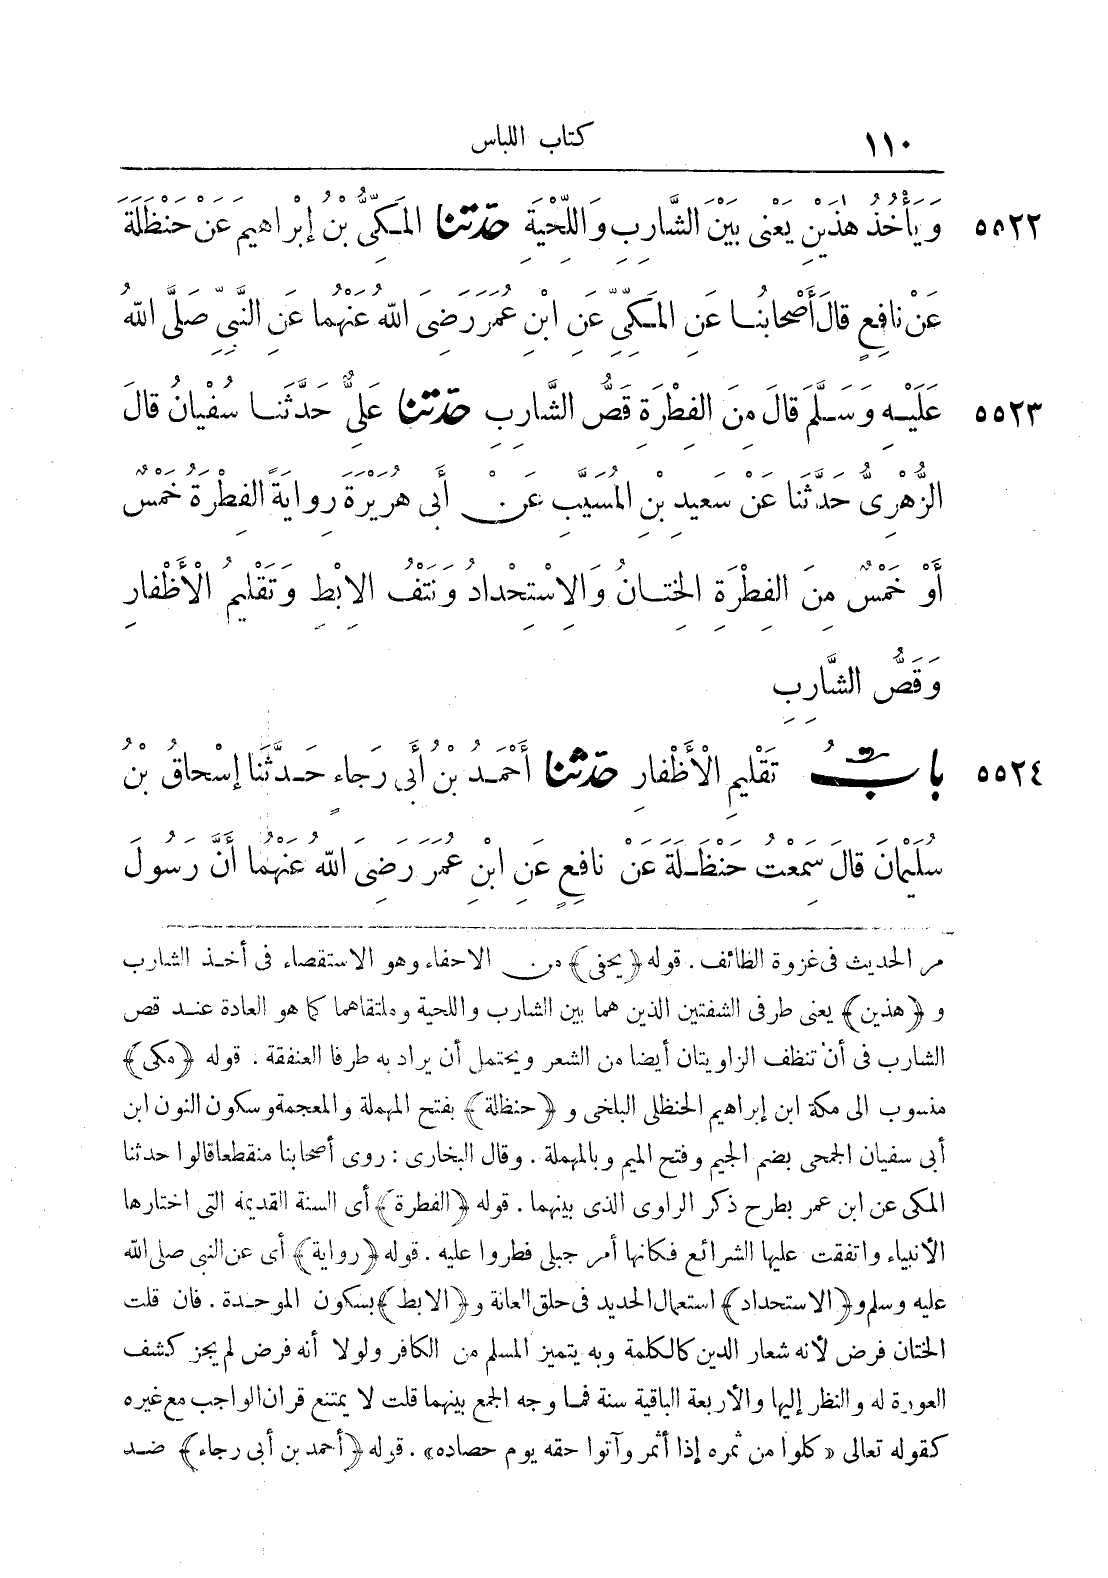 ١١٠ كتاب اللباس
٥٥٢٢ وَيَأْخُذُ هٰذَيْنِ يَعْنِى بَيْنَ الشَّارِبِ وَاللِّحْيَةِ حَدَّثَنَا الْمَكِّىُّ بْنُ إِبْرَاهِيمَ عَنْ حَنْظَلَةَ
عَنْ نَافِعٍ قَالَ أَصْحَابُنَا عَنِ الْمَكِّىِّ عَنِ ابْنِ عُمَرَ رَضِىَ اللّٰهُ عَنْهُمَا عَنِ النَّبِىِّ صَلَّى اللّٰهُ
٥٥٢٣ عَلَيْهِ وَسَلَّمَ قَالَ مِنَ الفِطْرَةِ قَصُّ الشَّارِبِ حَدَّثَنَا عَلِىٌّ حَدَّثَنَا سُفْيَانُ قَالَ
الزُّهْرِىُّ حَدَّثَنَا عَنْ سَعِيدِ بْنِ المُسَيَّبِ عَنْ أَبِى هُرَيْرَةَ رِوَايَةً الفِطْرَةُ خَمْسٌ
أَوْ خَمْسٌ مِنَ الفِطْرَةِ الخِتَانُ وَالاِسْتِحْدَادُ وَنَتْفُ الاِبْطِ وَتَقْلِيمُ الْأَظْفَارِ
وَقَصُّ الشَّارِبِ
٥٥٢٤ بَابُ تَقْلِيمِ الْأَظْفَارِ حَدَّثَنَا أَحْمَدُ بْنُ أَبِى رَجَاءٍ حَدَّثَنَا إِسْحَاقُ بْنُ
سُلَيْمَانَ قَالَ سَمِعْتُ حَنْظَلَةَ عَنْ نَافِعٍ عَنِ ابْنِ عُمَرَ رَضِىَ اللّٰهُ عَنْهُمَا أَنَّ رَسُولَ
مر الحديث فى غزوة الطائف. قوله ﴿يحفى﴾ من الاحفاء وهو الاستقصاء فى أخذ الشارب
و ﴿هذين﴾ يعنى طرفى الشفتين الذين هما بين الشارب واللحية وملتقاهما كما هو العادة عند قص
الشارب فى أن تنظف الزاويتان أيضا من الشعر ويحتمل أن يراد به طرفا العنفقة. قوله ﴿مكى﴾
منسوب الى مكة ابن إبراهيم الحنظلى البلخى و ﴿حنظلة﴾ بفتح المهملة والمعجمة وسكون النون ابن
أبى سفيان الجمحى بضم الجيم وفتح الميم وبالمهملة. وقال البخارى: روى أصحابنا منقطعا قالوا حدثنا
المكى عن ابن عمر بطرح ذكر الراوى الذى بينهما. قوله ﴿الفطرة﴾ أى السنة القديمة التى اختارها
الأنبياء واتفقت عليها الشرائع فكانها أمر جبلى فطروا عليه. قوله ﴿رواية﴾ أى عن النبى صلى الله
عليه وسلم و﴿الاستحداد﴾ استعمال الحديد فى حلق العانة و﴿الابط﴾ بسكون الموحدة. فان قلت
الختان فرض لأنه شعار الدين كالكلمة وبه يتميز المسلم من الكافر ولولا أنه فرض لم يجز كشف
العورة له والنظر إليها والأربعة الباقية سنة فما وجه الجمع بينهما قلت لا يمتنع قران الواجب مع غيره
كقوله تعالى «كلوا من ثمره إذا أثمر وآتوا حقه يوم حصاده». قوله ﴿أحمد بن أبى رجاء﴾ ضد